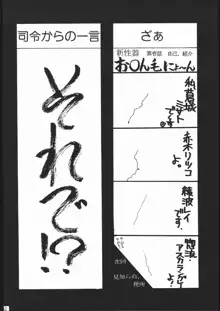 ざぁ
新性器
第壱話 自己、紹介
お〇んもにょ〜ん
葛城
ミサト
です。
赤木リツコ
よ。
綾波レイ
です、
惣流・
アスカラングレー
よ!
次回
見知らぬ、
便所
司令からの一言
それで!?